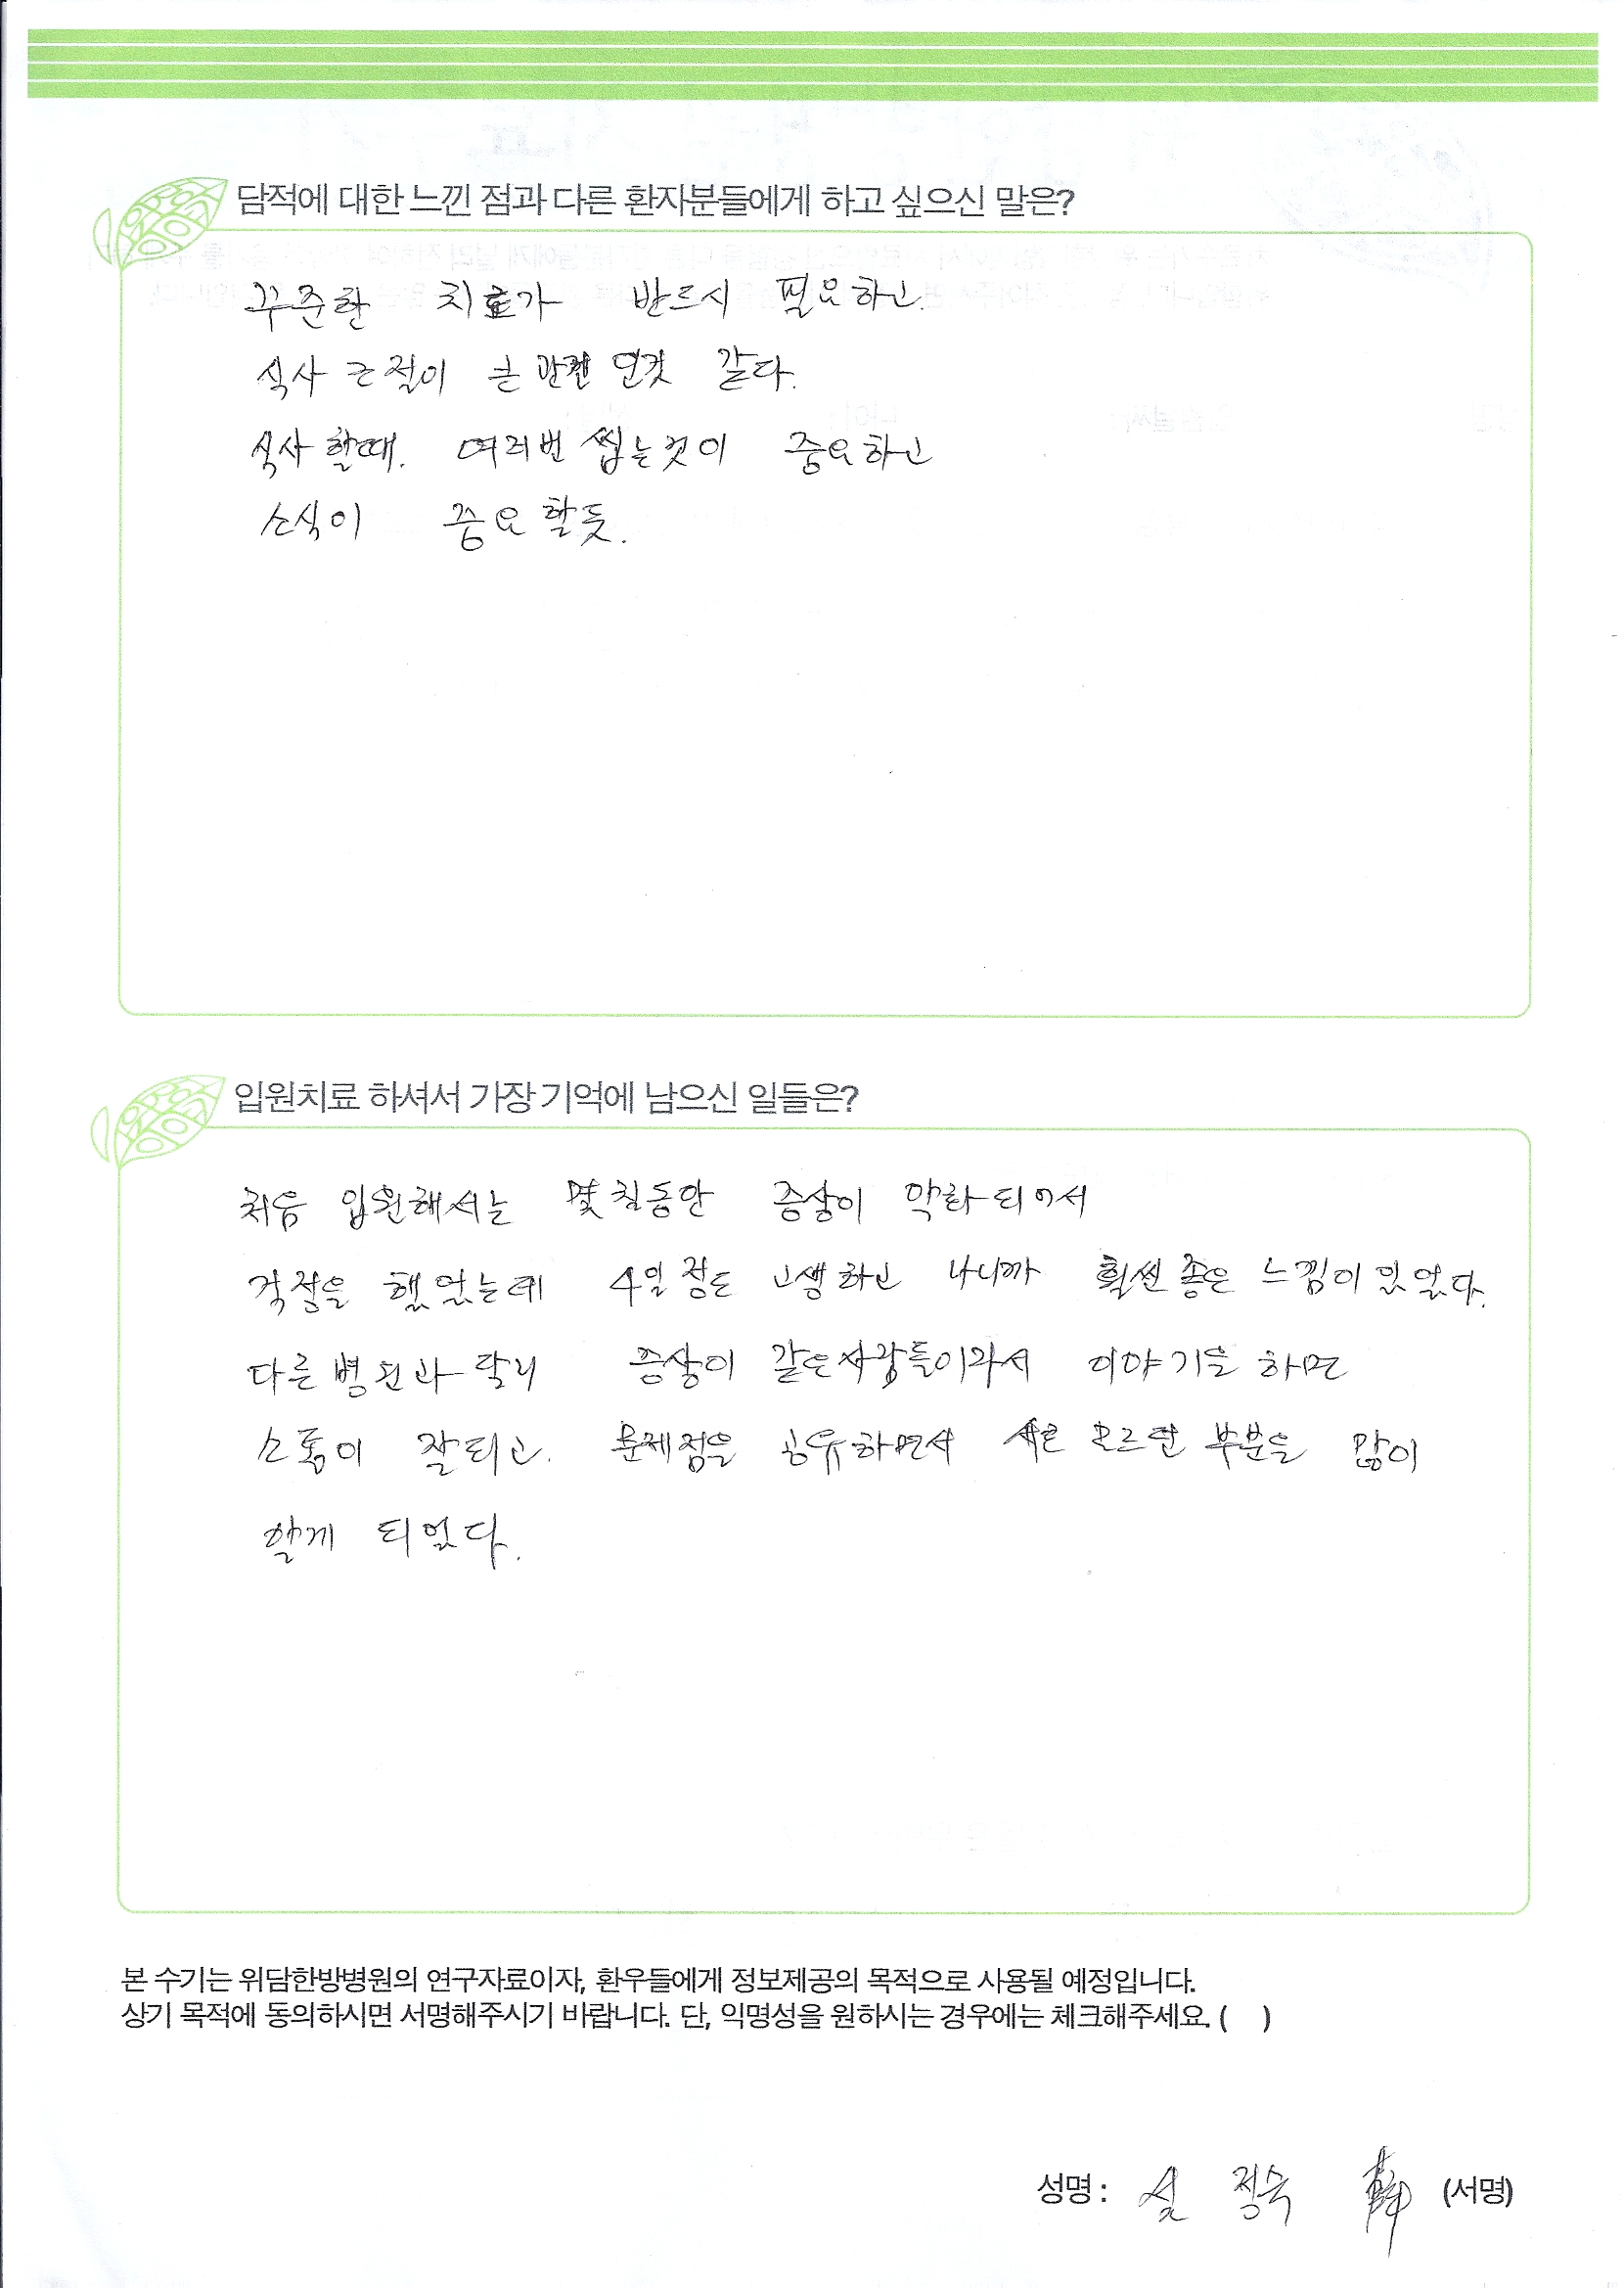 담적에 대한 느낀 점과 다른 환자분들에게 하고 싶으신 말은?
꾸준한 치료가 반드시 필요하고.
식사 조절이 큰 관건 인것 같다.
식사 할때. 여러번 씹는것이 중요하고
소식이 중요 할듯.
입원치료 하셔서 가장 기억에 남으신 일들은?
처음 입원해서는 몇칠동안 증상이 악화되어서
걱정을 했었는데 4일 정도 고생하고 나니까 훨씬 좋은 느낌이 있었다.
다른 병원과 달리 증상이 같은사람들이라서 이야기를 하면
소통이 잘되고. 문제점을 공유하면서 서로 모르던 부분을 많이
알게 되었다.
본 수기는 위담한방병원의 연구자료이자, 환우들에게 정보제공의 목적으로 사용될 예정입니다.
상기 목적에 동의하시면 서명해주시기 바랍니다. 단, 익명성을 원하시는 경우에는 체크해주세요. ( )
성명 : 정숙 (서명)